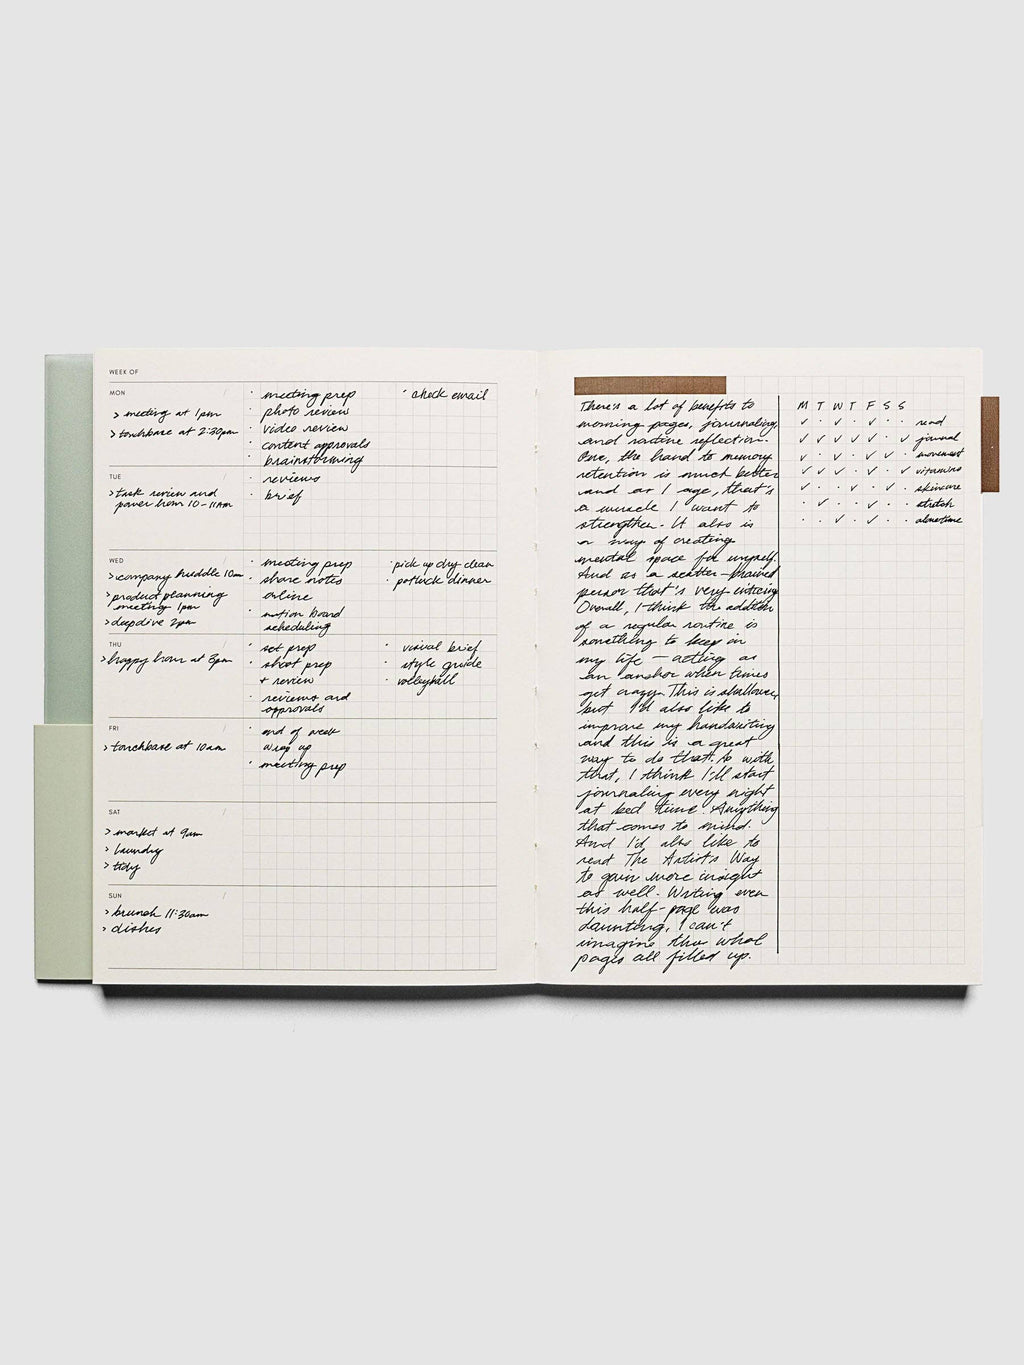 WEEK OF
MON
> meeting at 1pm
> touchbase at 2:30pm
· meeting prep
· photo review
· video review
· content approvals
· brainstorming
· check email
TUE
> task review and
power hour 10-11AM
· reviews
· brief
WED
> company huddle 10am
> product planning
meeting 1pm
> deep dive 2pm
· meeting prep
· share notes
online
· motion board
scheduling
· pick up dry clean
· potluck dinner
THU
> happy hour at 3pm
· set prep
· shoot prep
+ review
· reviews and
approvals
· visual brief
· style guide
· volleyball
FRI
> touchbase at 10am
· end of week
wrap up
· meeting prep
SAT
> market at 9am
> laundry
> tidy
SUN
> brunch 11:30am
> dishes
There's a lot of benefits to
morning pages, journaling,
and routine reflection.
One, the hand to memory
retention is much better
and as I age, that's
a muscle I want to
strengthen. It also is
a way of creating
mental space for myself.
And as a scatter-brained
person that's very enticing
Overall, I think the addition
of a regular routine is
something to keep in
my life — acting as
an anchor when times
get crazy. This is shallower,
but I'd also like to
improve my handwriting
and this is a great
way to do that. So with
that, I think I'll start
journaling every night
at bed time. Anything
that comes to mind.
And I'd also like to
read The Artist's Way
to gain more insight
as well. Writing even
this half-page was
daunting, I can't
imagine the what
pages all filled up.
M T W T F S S
✓ · ✓ · ✓ · · read
✓ ✓ ✓ ✓ ✓ · ✓ journal
✓ · ✓ · ✓ ✓ · movement
✓ ✓ ✓ · ✓ · ✓ vitamins
✓ · · ✓ · ✓ · skincare
· ✓ · · ✓ · · stretch
· · ✓ · ✓ · · alone time